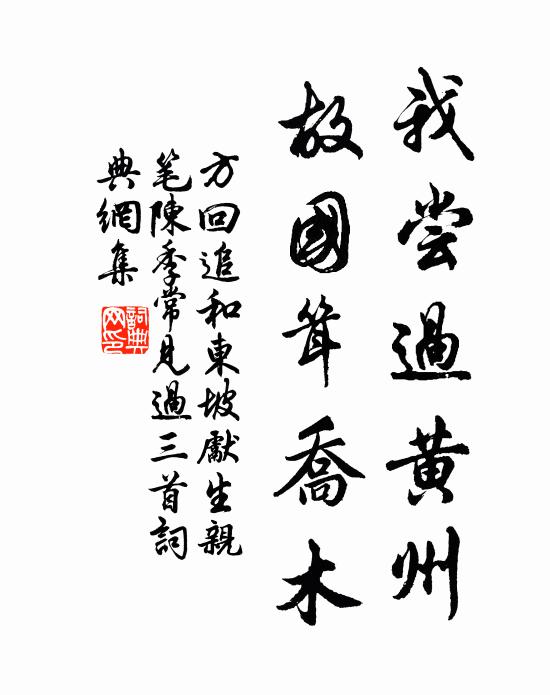 我嘗過黃州
故國耸喬木
方回追和東坡獻生親
笔陳季常見過三首詞
典網集
詞典网印